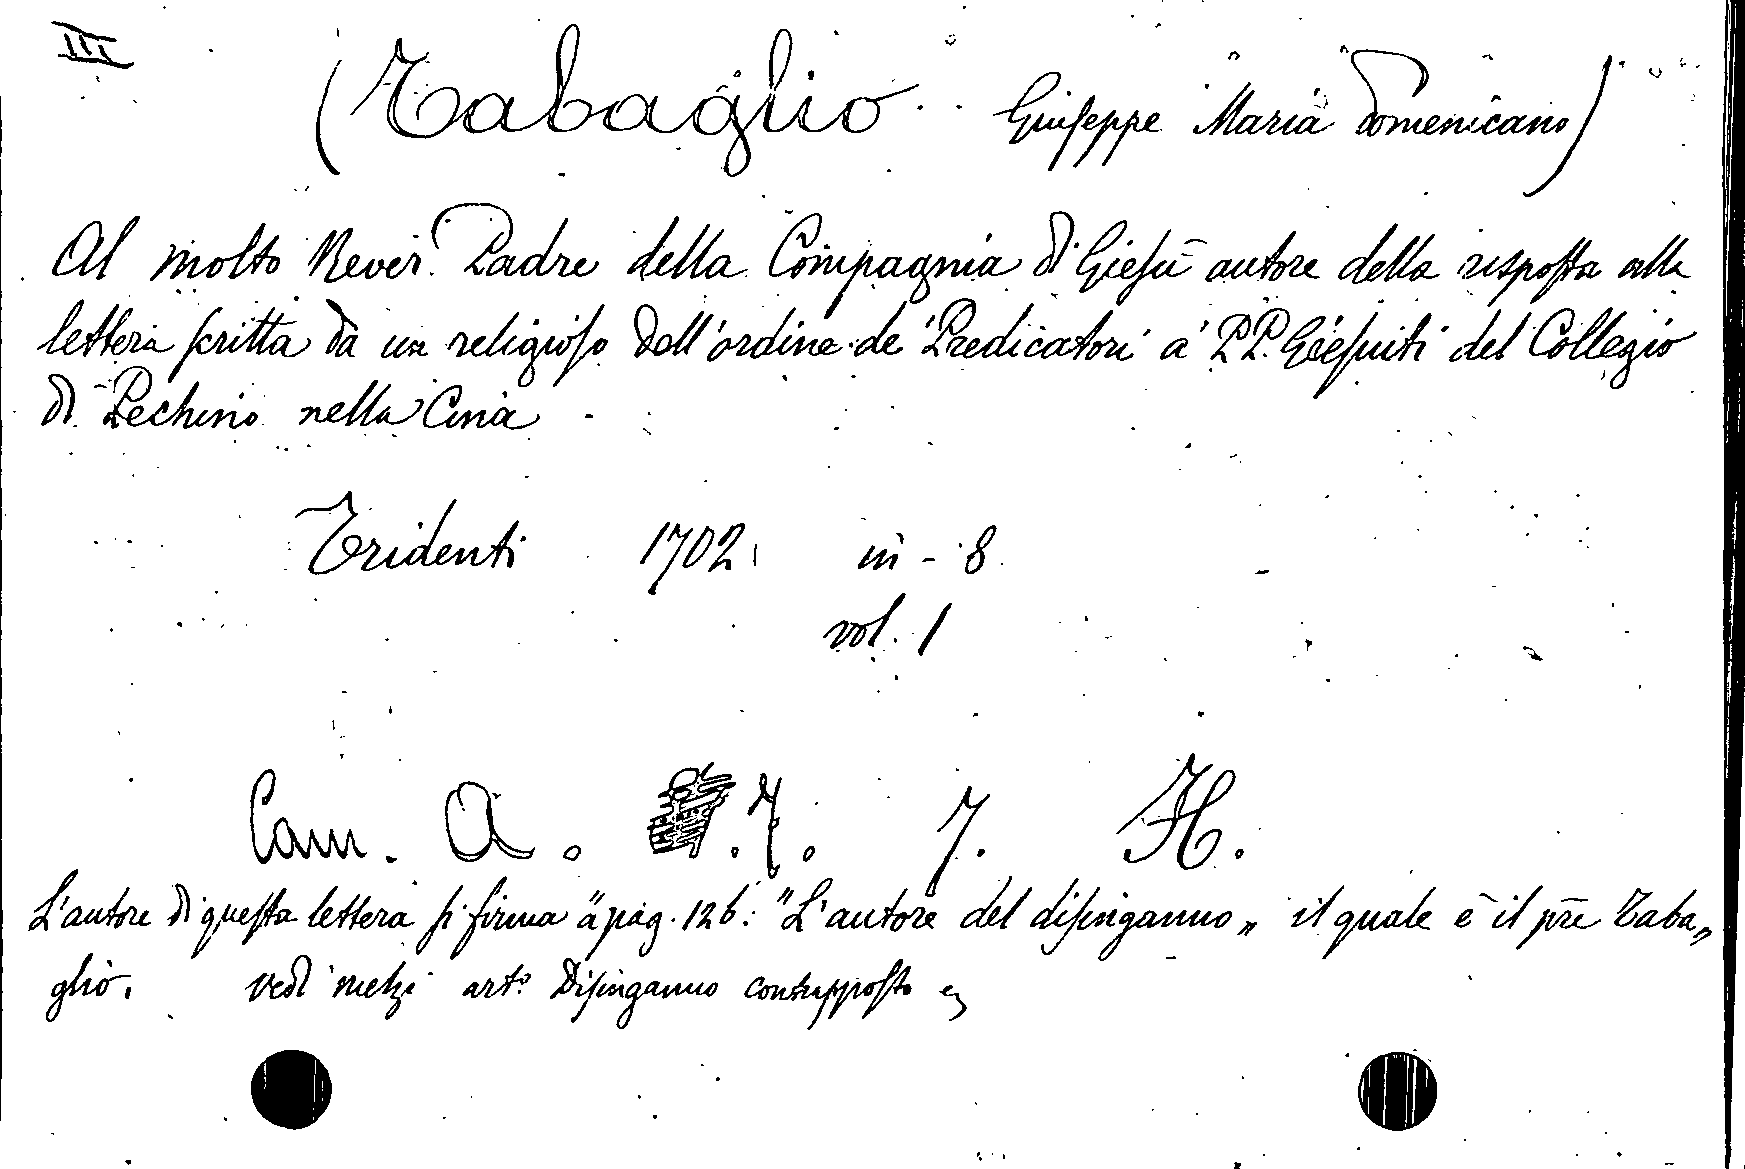 III
(Tabaglio Giuseppe Maria domenicano)
Al molto Rever. Padre della Compagnia di Giesù autore della risposta alla
lettera scritta da un religioso dell'ordine de' Predicatori a' PP. Giesuiti del Collegio
di Pechino nella Cina
Tridenti 1702 in-8
vol. 1
Cam. A. . 7. 7. H.
L'autore di questa lettera si firma a pag. 126: "L'autore del disinganno„ il quale è il pre Taba„
glio. vedi melzi arto. Disinganno contrapposto